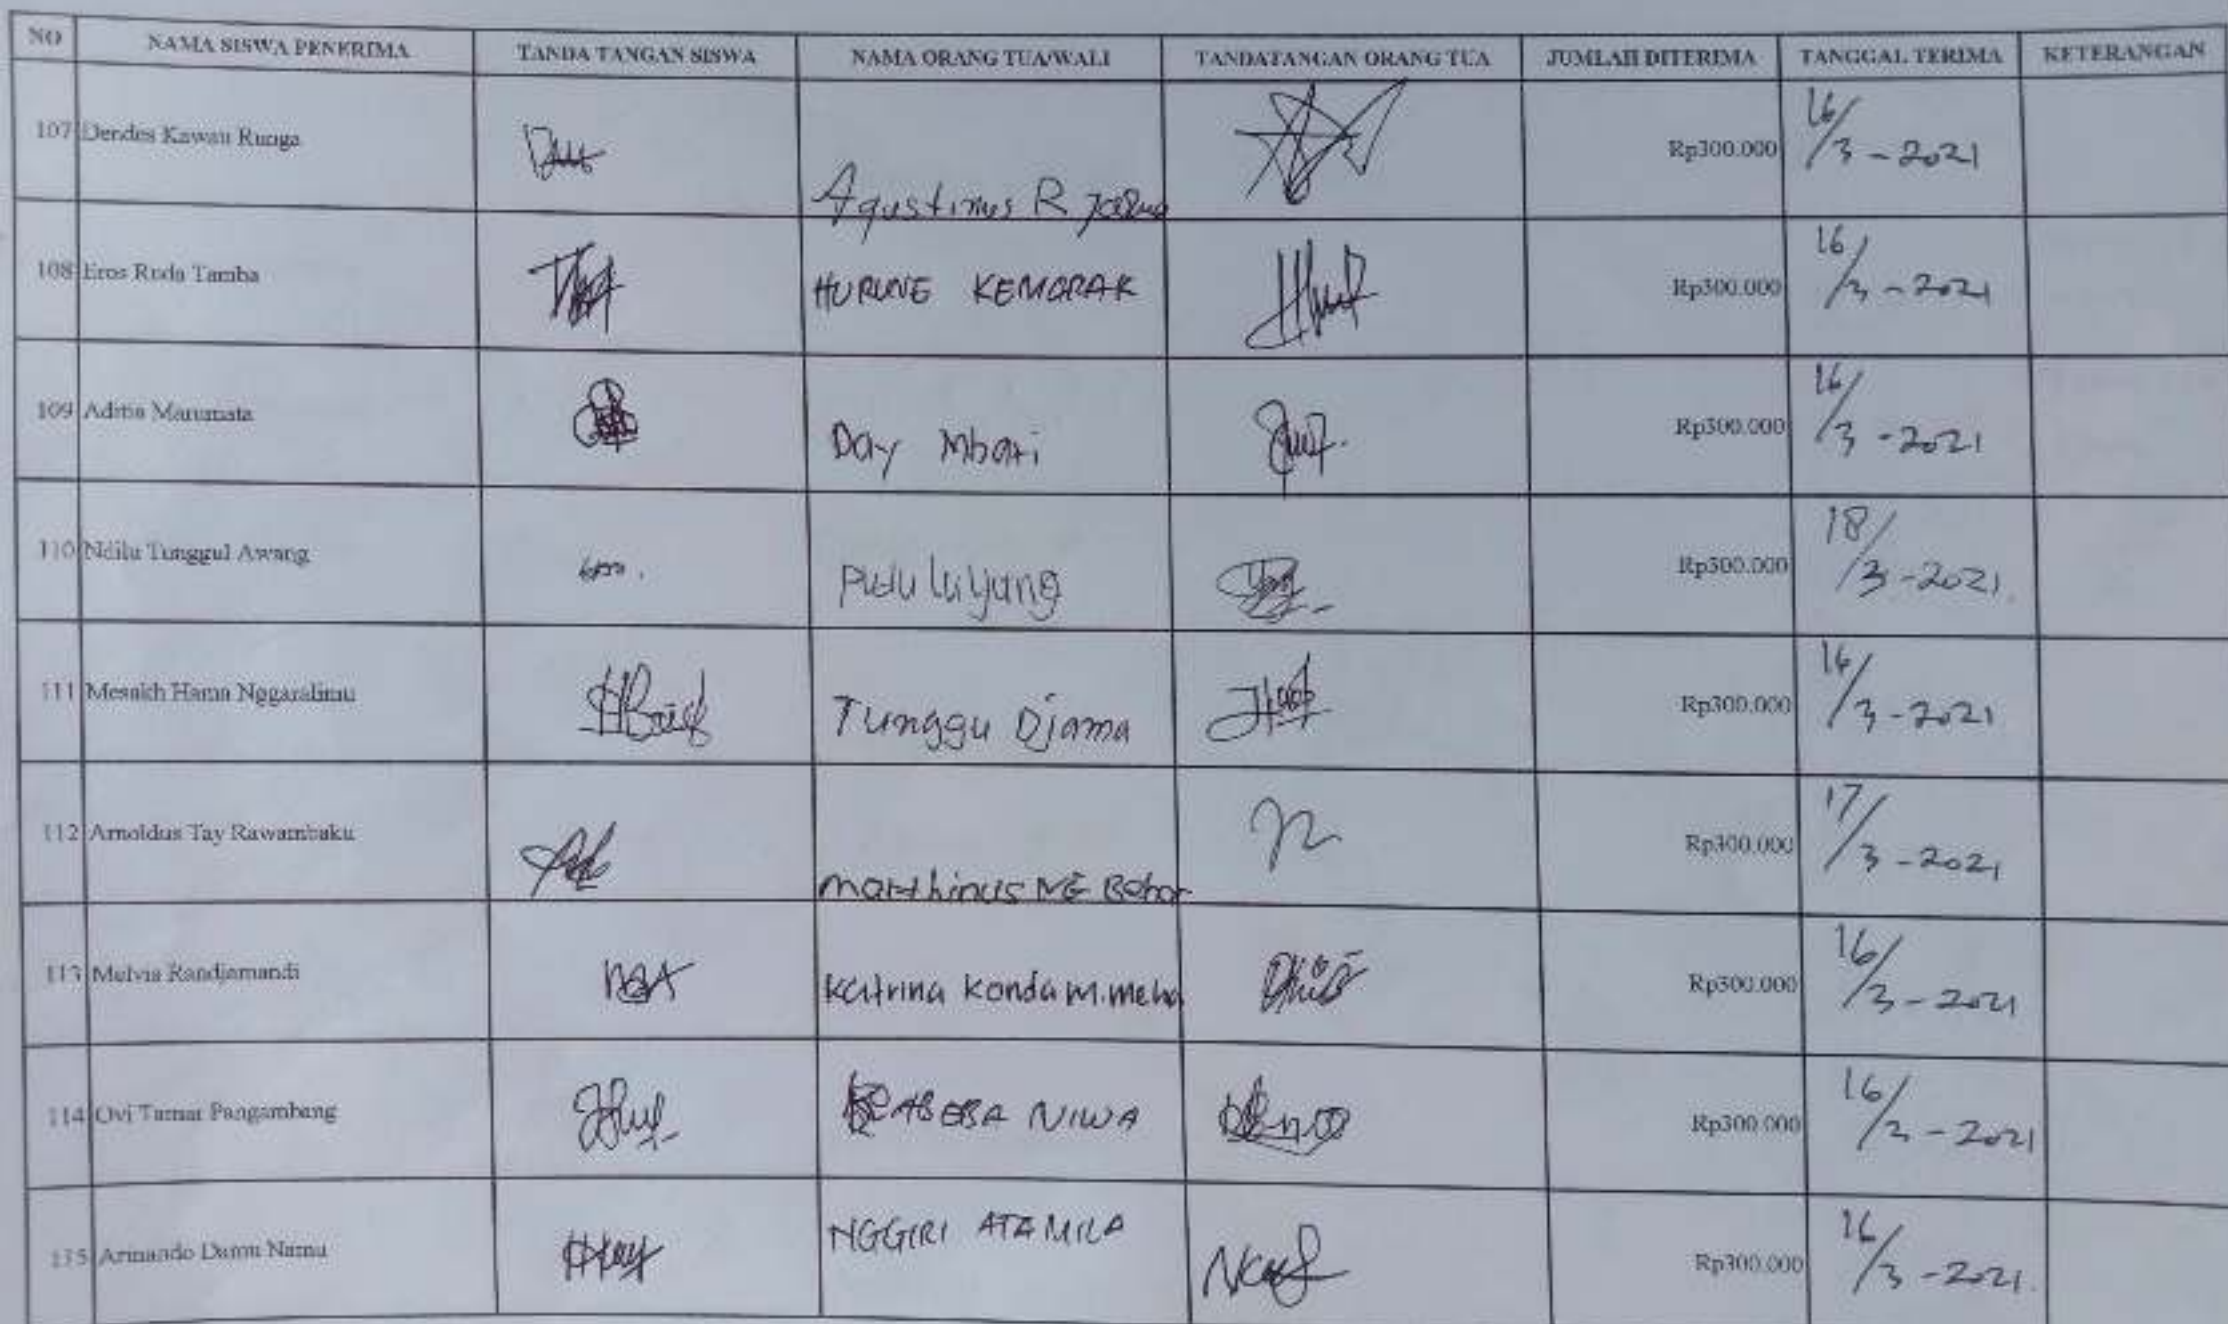 NO NAMA SISWA PENERIMA TANDA TANGAN SISWA NAMA ORANG TUA/WALI TANDATANGAN ORANG TUA JUMLAH DITERIMA TANGGAL TERIMA KETERANGAN
107 Dendes Kawau Runga Agustinus R Rp300.000 16/3-2021
108 Eros Ruda Tamba HURUNG KEMARAK Rp300.000 16/3-2021
109 Aditia Manumata Day Mbari Rp300.000 16/3-2021
110 Ndilu Tunggul Awang Rp300.000 18/3-2021
111 Mesakh Hama Nggaralimu Tunggu Djama Rp300.000 16/3-2021
112 Arnoldus Tay Rawambaku Marthinus Rp300.000 17/3-2021
113 Melvia Randjamandi Katrina Konda M.Meha Rp300.000 16/3-2021
114 Ovi Tamar Pangambang NIWA Rp300.000 16/3-2021
115 Armando Damu Namu NGGIRI ATA MILA Rp300.000 16/3-2021